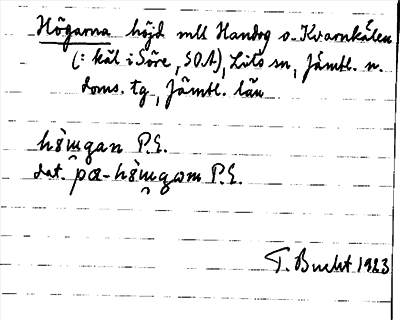 Högarna höjd mll Handog o. Kvarnkälen
(: käl i Söre, SO.A), Lits sn, Jämtl. n.
doms. tg., Jämtl. län
P.E.
dat. P.E.
T. Bucht 1923